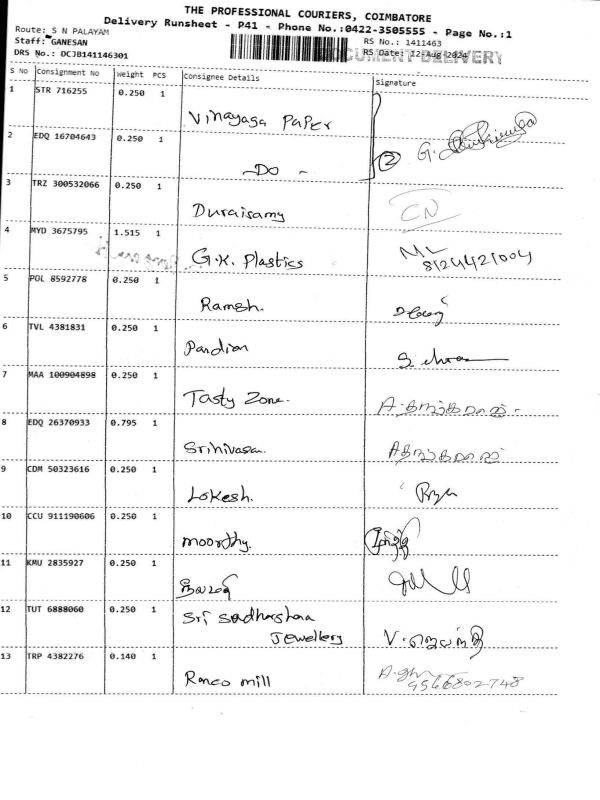 THE PROFESSIONAL COURIERS, COIMBATORE
Delivery Runsheet - P41 - Phone No.:0422-3505555 - Page No.:1
Route: S N PALAYAM
Staff: GANESAN
DRS No.: DCJB141146301
RS No.: 1411463
DOCUMENT DELIVERY
RS Date: 12-Aug-2024
S No Consignment No Weight PCS Consignee Details Signature
1 STR 716255 0.250 1 Vinayaga Paper
2 EDQ 16704643 0.250 1 -Do- (2) G.
3 TRZ 300532066 0.250 1 Duraisamy CN
4 MYD 3675795 1.515 1 G.K. Plastics ML
8124421004
5 POL 8592778 0.250 1 Ramesh.
6 TVL 4381831 0.250 1 Pandian
7 MAA 100904898 0.250 1 Tasty Zone.
8 EDQ 26370933 0.795 1 Srinivasan
9 CDM 50323616 0.250 1 Lokesh.
10 CCU 911190606 0.250 1 moorthy.
11 KMU 2835927 0.250 1
12 TUT 6888060 0.250 1 Sri sadharshana
Jewellery
13 TRP 4382276 0.140 1 Ranco mill
9566802748